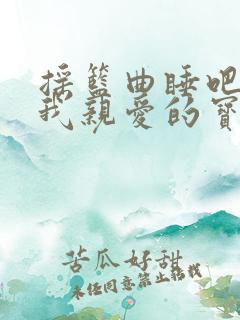 摇籃曲睡吧
我親愛的寶
苦瓜好甜
未经同意禁止转载